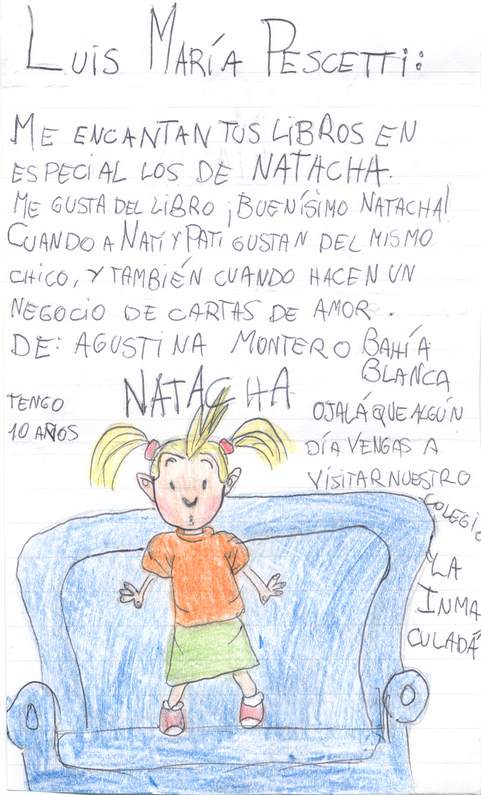 LUIS MARÍA PESCETTI:
ME ENCANTAN TUS LIBROS EN
ESPECIAL LOS DE NATACHA.
ME GUSTA DEL LIBRO ¡BUENÍSIMO NATACHA!
CUANDO A NATI Y PATI GUSTAN DEL MISMO
CHICO, Y TAMBIÉN CUANDO HACEN UN
NEGOCIO DE CARTAS DE AMOR.
DE: AGUSTINA MONTERO BAHÍA
BLANCA
NATACHA
TENGO
10 AÑOS
OJALÁ QUE ALGÚN
DÍA VENGAS A
VISITAR NUESTRO
COLEGIO
Y LA
INMA
CULADA